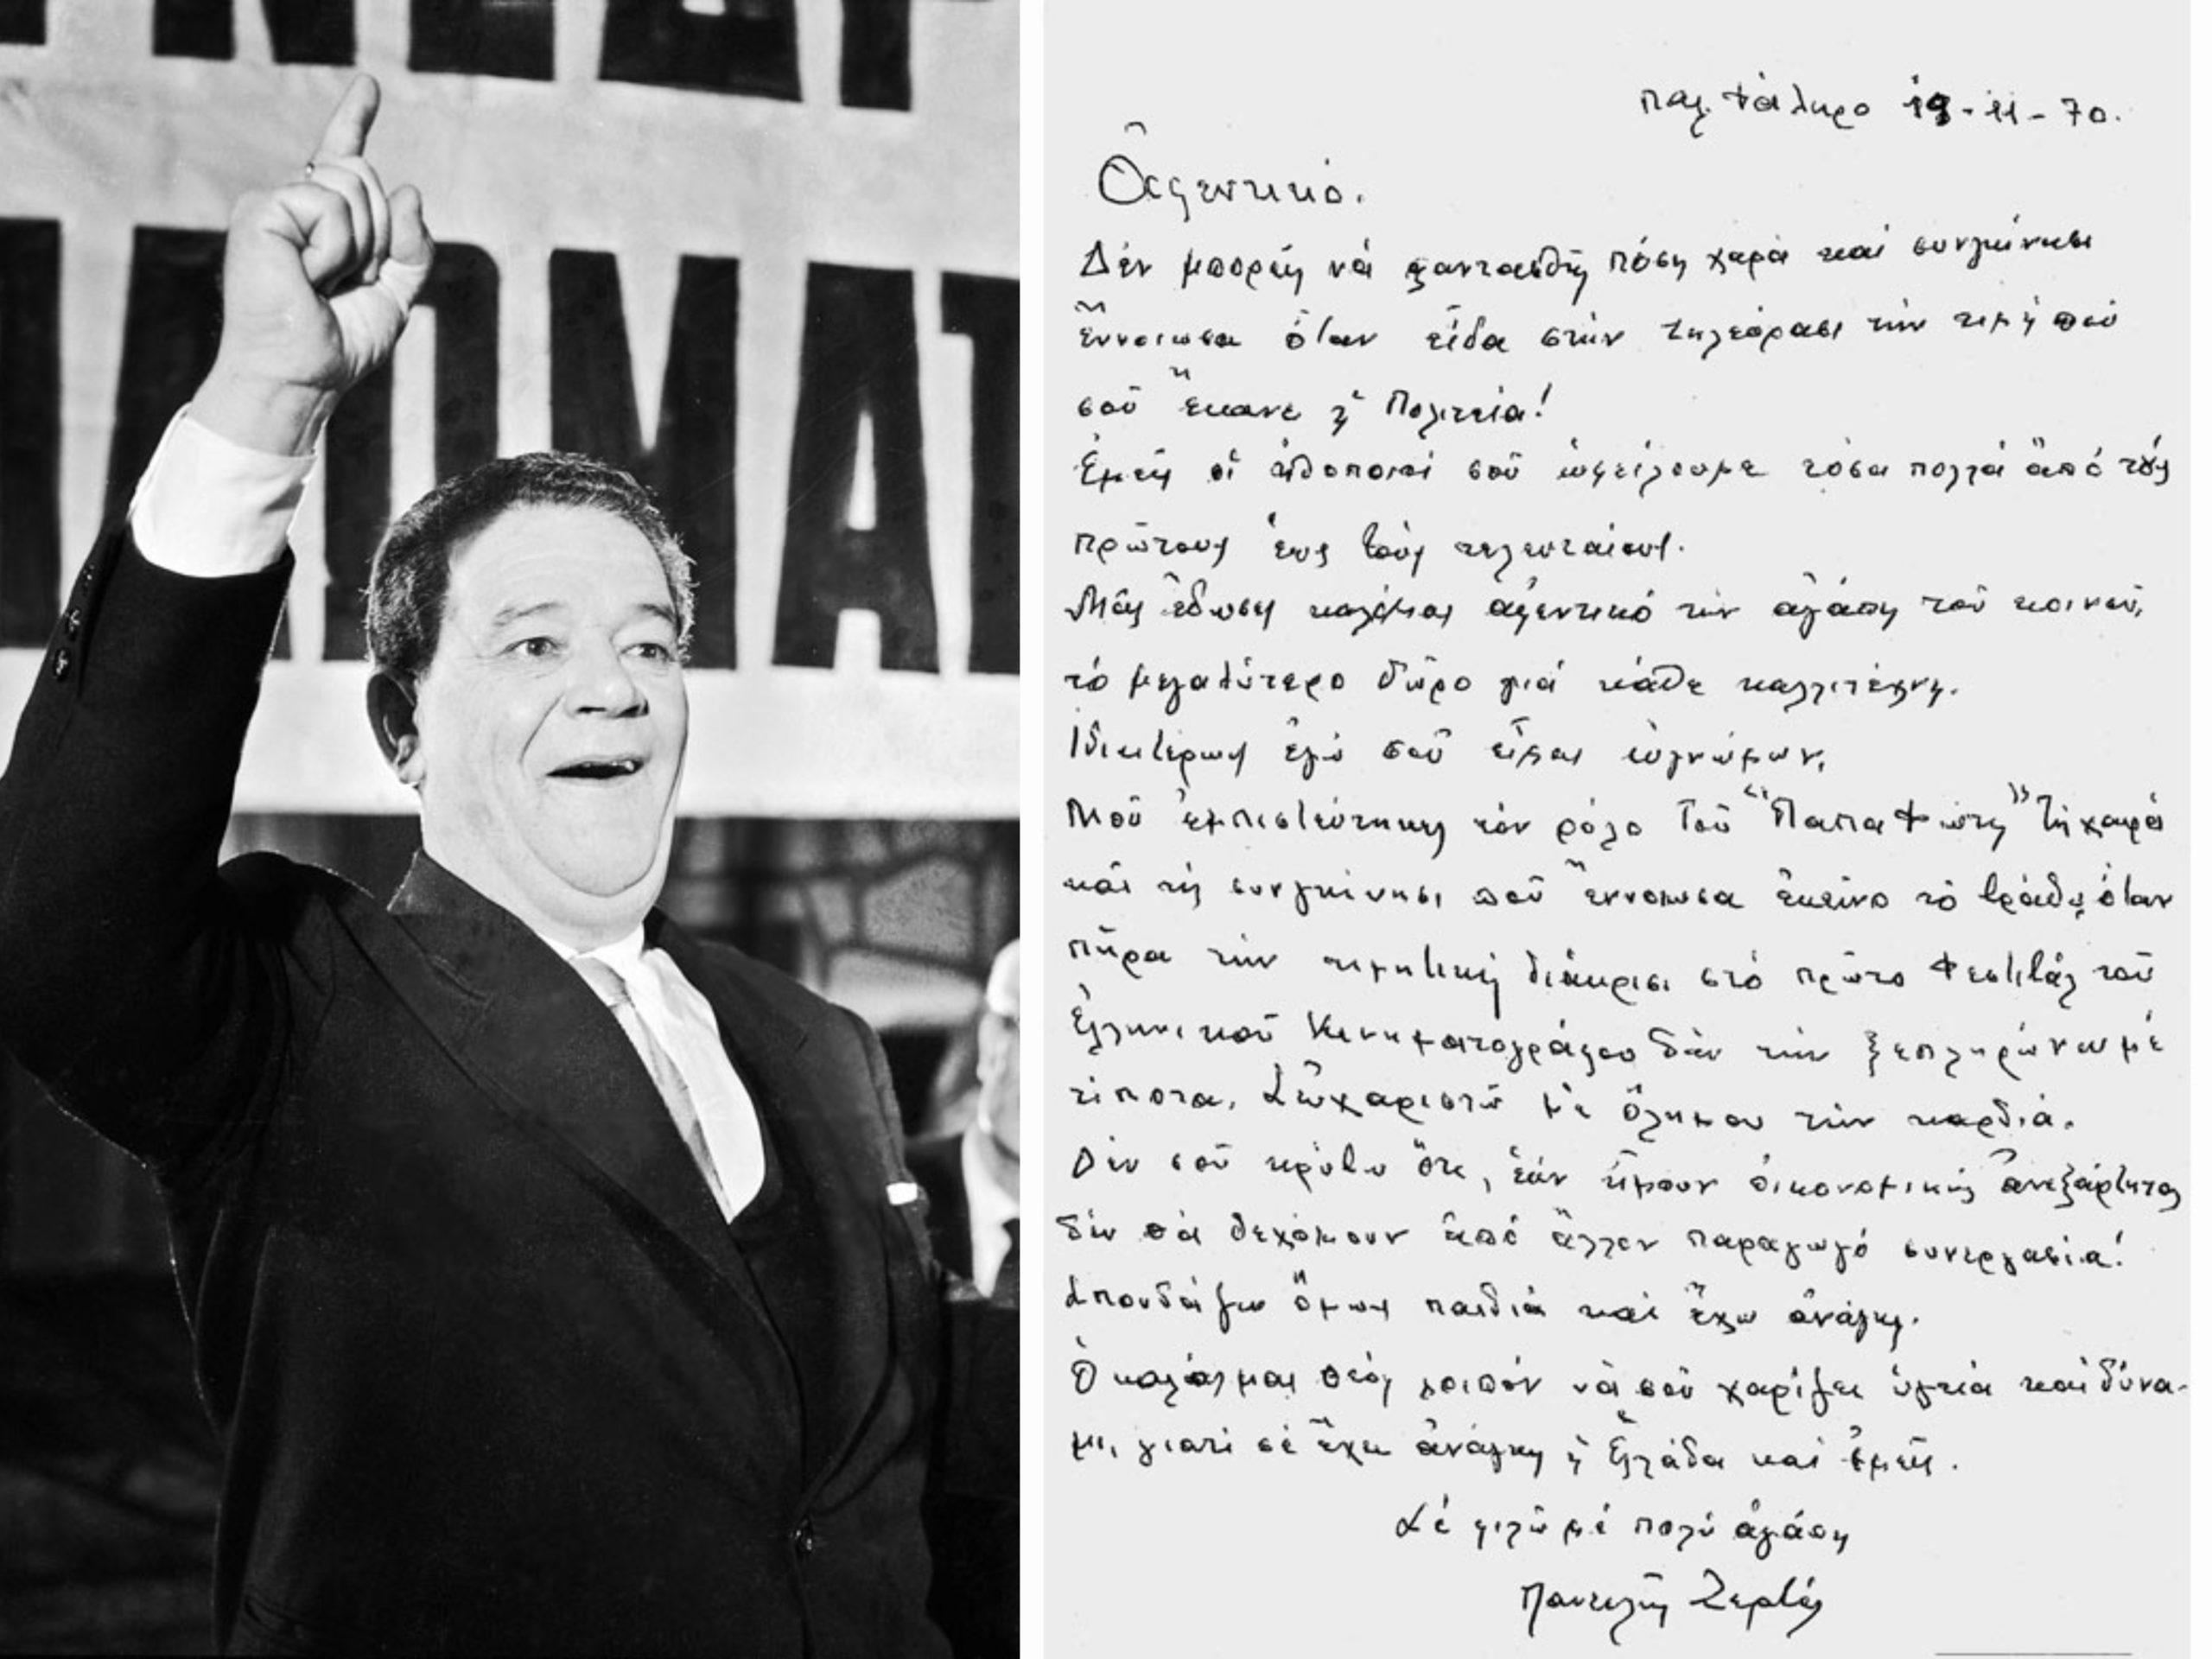 ΜΑΤ
Παλ. Φάληρο 19-11-70.
Ἀφεντικό.
Δέν μπορεῖς νά φαντασθῆς πόση χαρά καί συνγκίνησι
ἔννοιωσα ὅταν εἶδα στήν τηλεόρασι τήν τιμή πού
σοῦ ἔκανε ἡ Πολιτεία!
Ἐμεῖς οἱ ἠθοποιοί σοῦ ὠφείλουμε τόσα πολλά ἀπό τούς
πρώτους ἕως τούς τελευταίους.
Μᾶς ἔδωσες καλέ μας ἀφεντικό τήν ἀγάπη τοῦ κοινοῦ,
τό μεγαλύτερο δῶρο γιά κάθε καλλιτέχνη.
Ἰδιαιτέρως ἐγώ σοῦ εἶμαι εὐγνώμων,
Μοῦ ἐμπιστεύτηκες τόν ρόλο τοῦ "Παπα Φώτη" Τή χαρά
καί τή συνγκίνησι πού ἔννοιωσα ἐκεῖνο τό βράδυ, ὅταν
πῆρα τήν τιμητική διάκρισι στό πρῶτο Φεστιβάλ τοῦ
Ἑλληνικοῦ Κινηματογράφου δέν τήν ξεπληρώνω μέ
τίποτα, Σ' εὐχαριστῶ μέ ὅλη μου τήν καρδιά.
Δέν σοῦ κρύβω ὅτι, ἐάν ἤμουν οἰκονομικῶς ἀνεξάρτητος
δέν θά δεχόμουν ἀπό ἄλλον παραγωγό συνεργασία!
Σπουδάζω ὅμως παιδιά καί ἔχω ἀνάγκη.
Ὁ καλός μας Θεός λοιπόν νά σοῦ χαρίζει ὑγεία καί δύνα-
μι, γιατί σέ ἔχει ἀνάγκη ἡ Ἑλλάδα καί ἐμεῖς.
Σέ φιλῶ μέ πολύ ἀγάπη
Παντελῆς Ζερβός